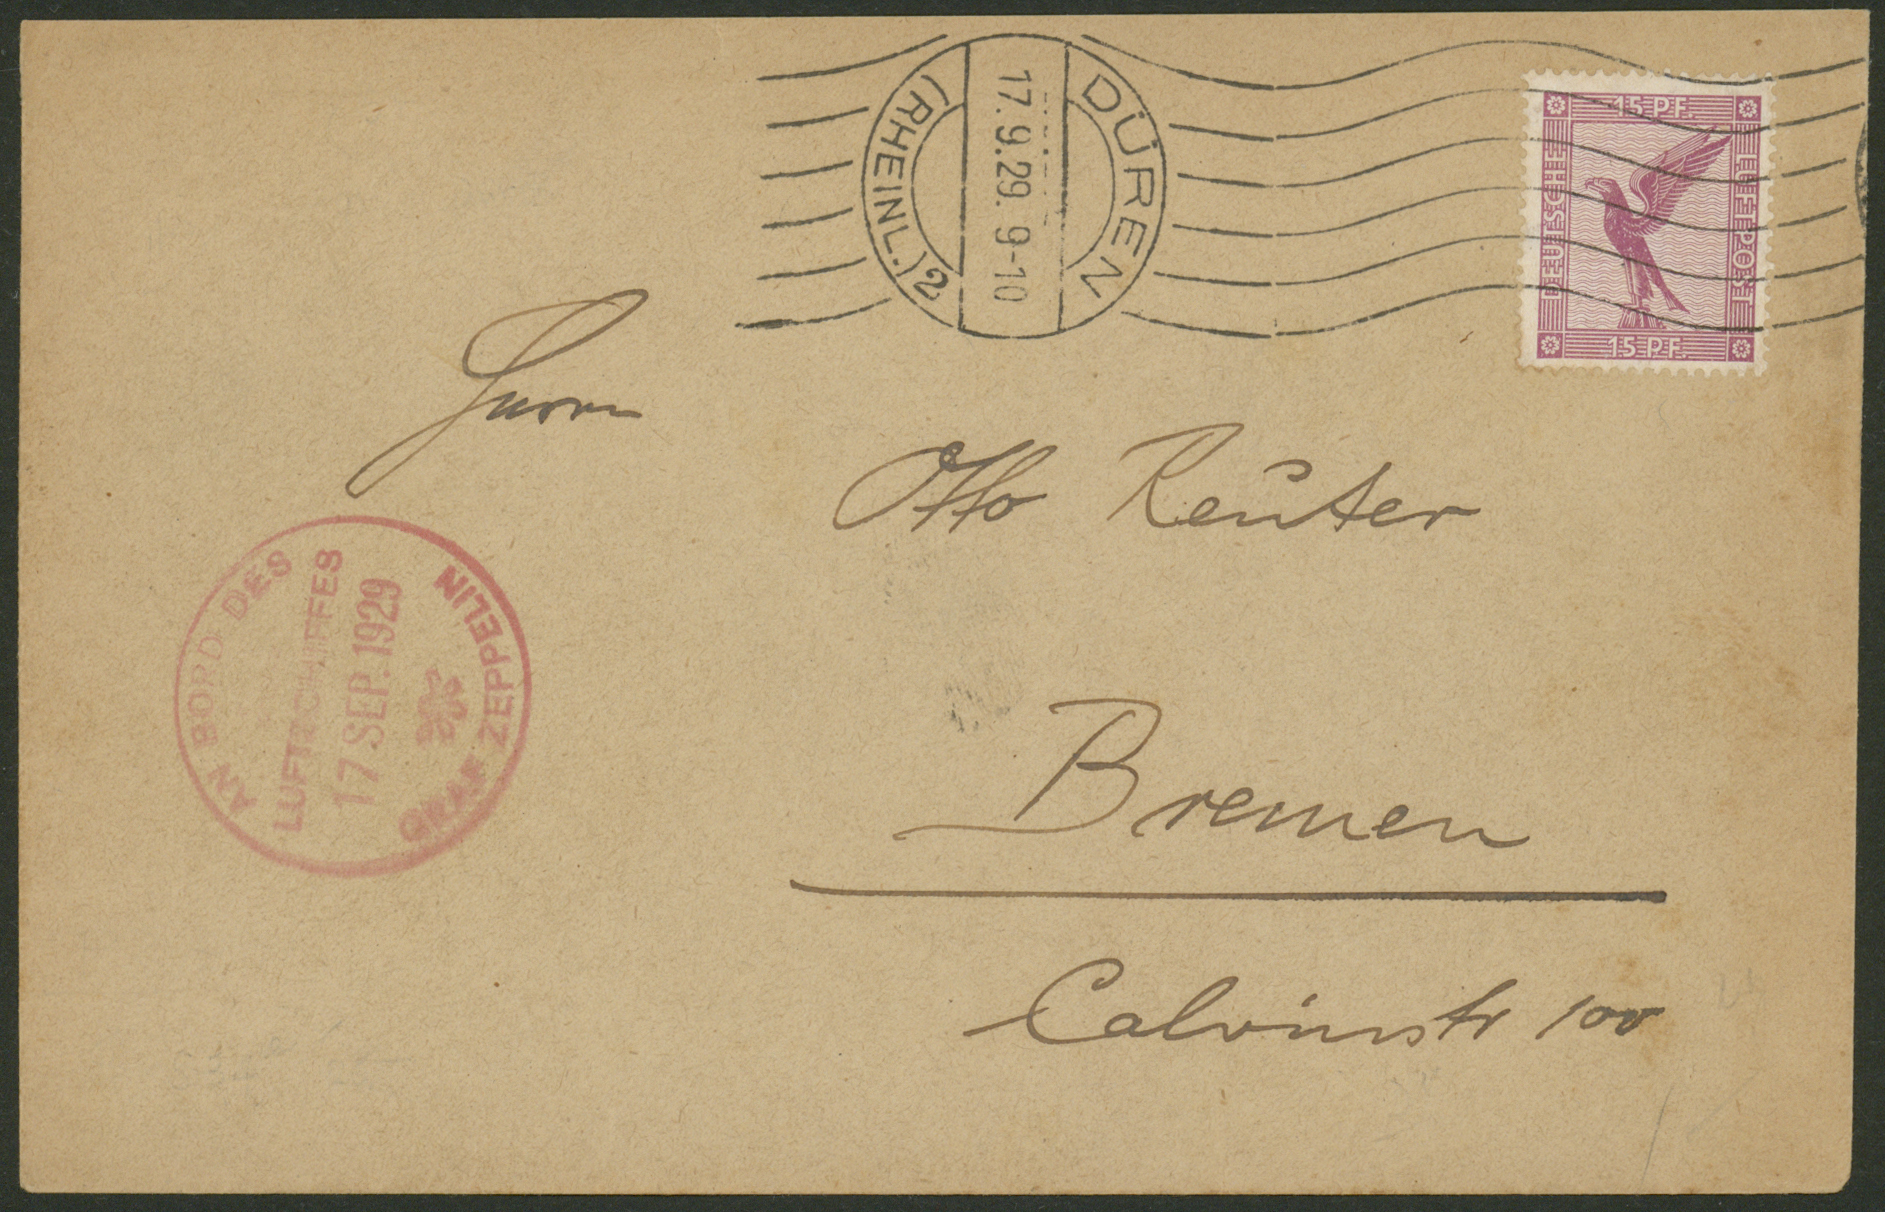 DÜREN
17.9.29. 9-10
(RHEINL.) 2
15 PF.
DEUTSCHE
LUFTPOST
15 PF.
Herrn
Otto Reuter
Bremen
Calvinstr 100
AN BORD DES
LUFTSCHIFFES
17 SEP. 1929
GRAF ZEPPELIN